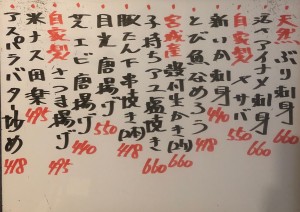 天然ぶり刺身 660
活〆アイナメ刺身 660
自家製〆サバ 550
新いか刺身 440
とび魚なめろう 418
宮城産殻付生かき(1ヶ) 660
子持ちアユ塩焼き 660
豚たん千串焼き(2本) 418
目光唐揚げ 550
芝エビ唐揚げ 440
自家製さつま揚げ 495
米ナス田楽 495
アスパラバター炒め 418